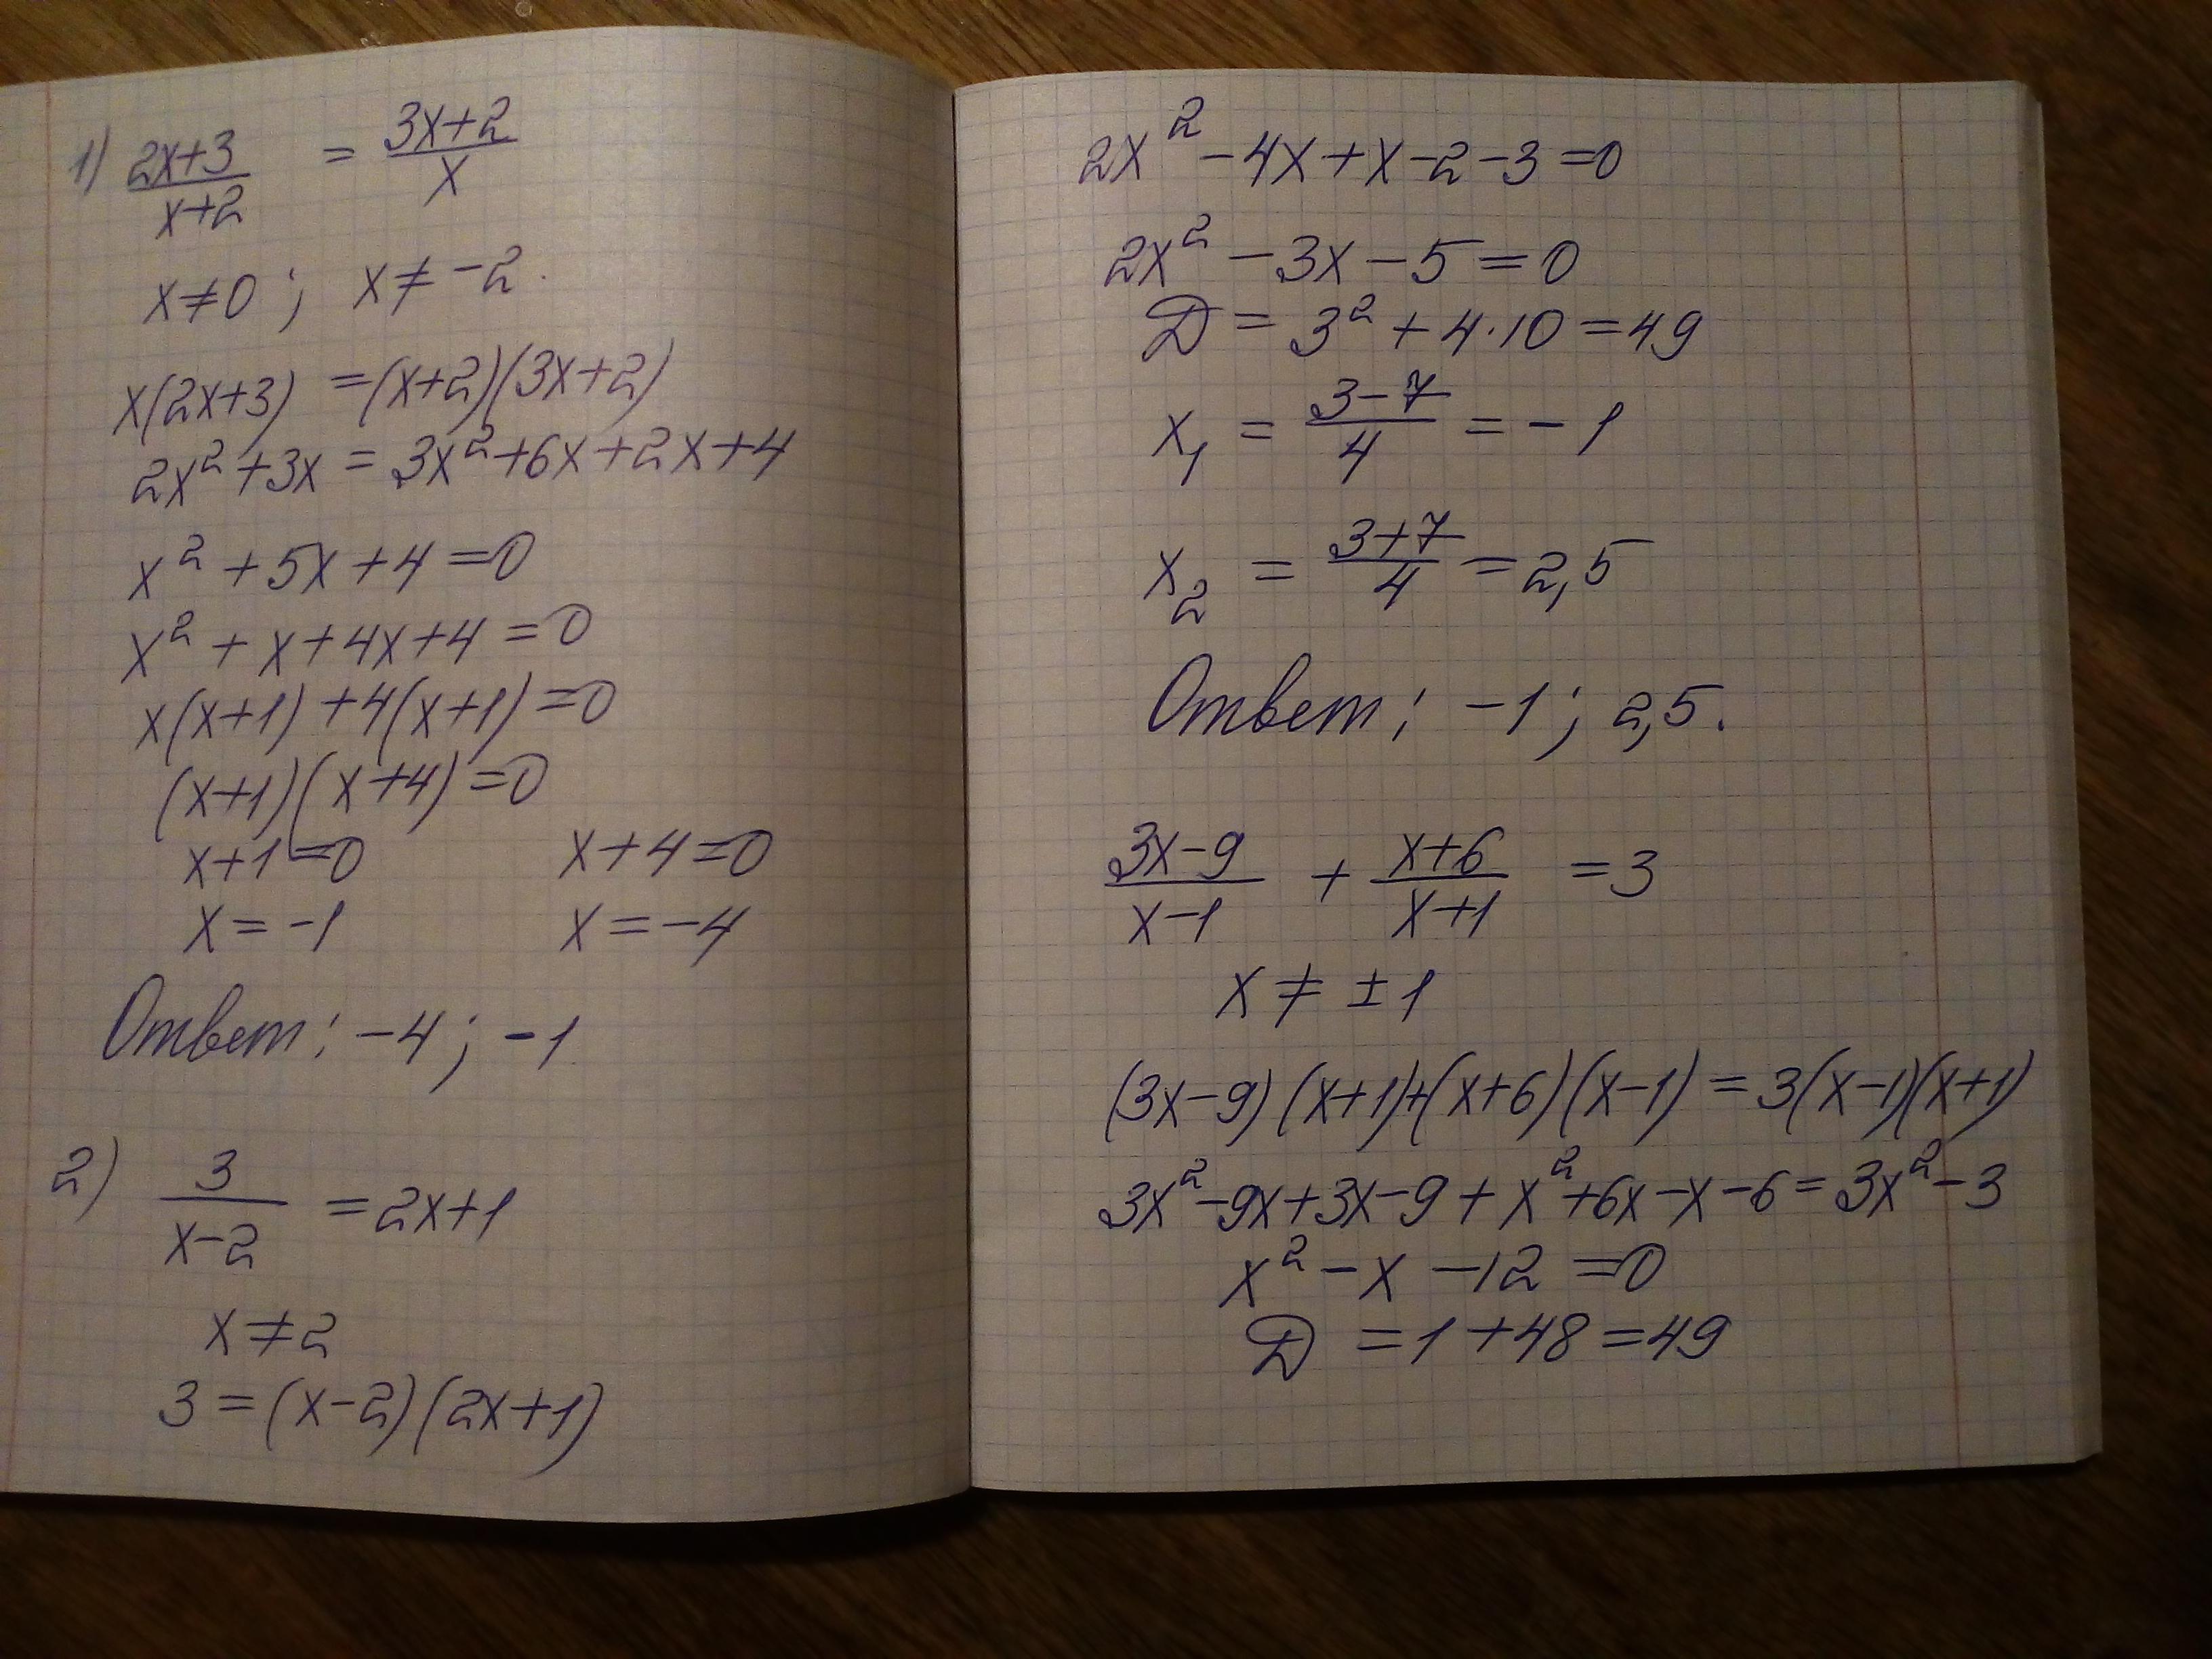 1) (2x+3)/(x+2) = (3x+2)/x
x≠0; x≠-2.
x(2x+3) =(x+2)(3x+2)
2x²+3x = 3x²+6x+2x+4
x²+5x+4=0
x²+x+4x+4=0
x(x+1)+4(x+1)=0
(x+1)(x+4)=0
x+1=0 x+4=0
x=-1 x=-4
Ответ: -4; -1.
2) 3/(x-2) =2x+1
x≠2
3=(x-2)(2x+1)
2x²-4x+x-2-3=0
2x²-3x-5=0
D=3²+4·10=49
x₁ = (3-7)/4 = -1
x₂ = (3+7)/4 =2,5
Ответ: -1; 2,5.
(3x-9)/(x-1) + (x+6)/(x+1) =3
x≠±1
(3x-9)(x+1)+(x+6)(x-1)=3(x-1)(x+1)
3x²-9x+3x-9+x²+6x-x-6=3x²-3
x²-x-12=0
D=1+48=49